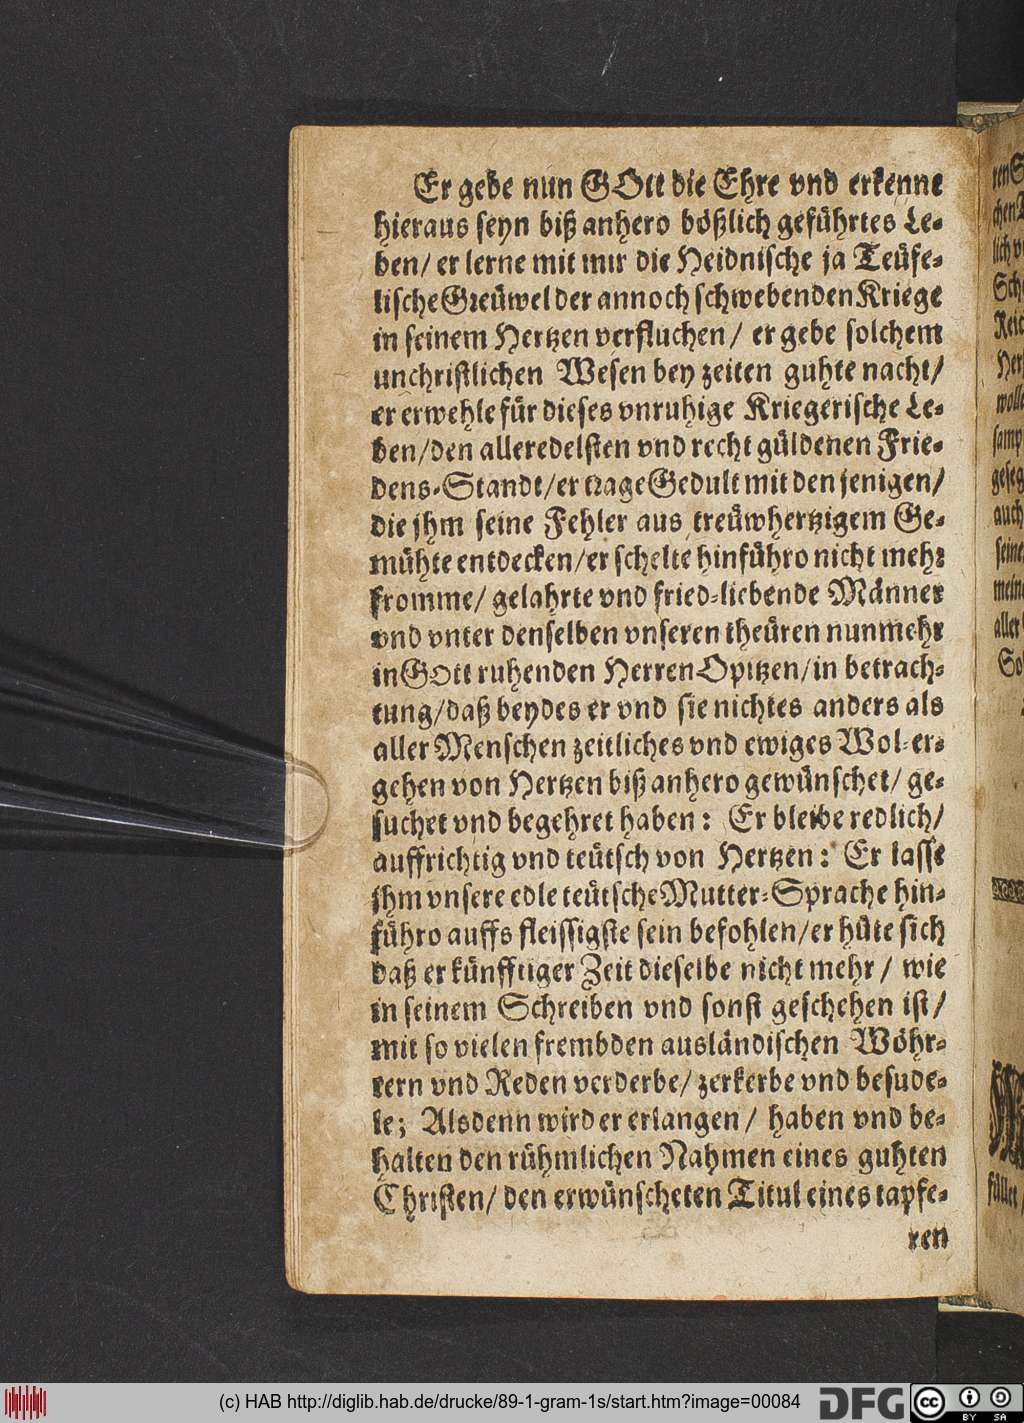 Er gebe nun GOtt die Ehre vnd erkenne
hieraus seyn biß anhero bößlich geführtes Le-
ben/ er lerne mit mir die Heidnische ja Teüfe-
lische Greüwel der annoch schwebenden Kriege
in seinem Hertzen verfluchen/ er gebe solchem
unchristlichen Wesen bey zeiten guhte nacht/
er erwehle für dieses vnruhige Kriegerische Le-
ben/den alleredelsten vnd recht güldenen Frie-
dens-Standt/er trage Gedult mit den jenigen/
die jhm seine Fehler aus treüwhertzigem Ge-
mühte entdecken/er schelte hinführo nicht mehr
fromme/ gelahrte vnd fried-liebende Männer
vnd vnter denselben vnseren theüren nunmehr
in GOtt ruhenden Herren Opitzen/in betrach-
tung/daß beydes er vnd sie nichtes anders als
aller Menschen zeitliches vnd ewiges Wol-er-
gehen von Hertzen biß anhero gewünschet/ ge-
suchet vnd begehret haben: Er bleibe redlich/
auffrichtig vnd teütsch von Hertzen: Er lasse
jhm vnsere edle teütsche Mutter-Sprache hin-
führo auffs fleissigste sein befohlen/er hüte sich
daß er künfftiger Zeit dieselbe nicht mehr/ wie
in seinem Schreiben vnd sonst geschehen ist/
mit so vielen frembden ausländischen Wöhr-
tern vnd Reden verderbe/ zerkerbe vnd besude-
le; Alsdenn wird er erlangen/ haben vnd be-
halten den rühmlichen Nahmen eines guhten
Christen/ den erwünscheten Titul eines tapfe-
ren
(c) HAB http://diglib.hab.de/drucke/89-1-gram-1s/start.htm?image=00084
DFG
cc BY SA